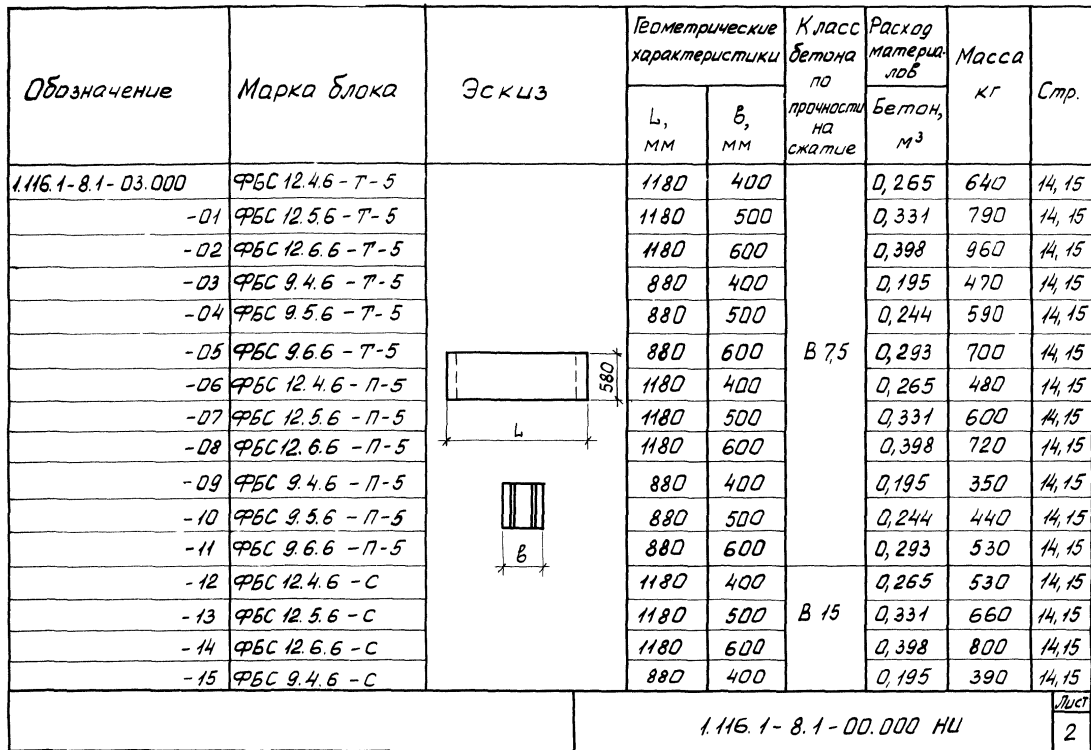 Обозначение
Марка блока
Эскиз
Геометрические характеристики
L, мм
в, мм
Класс бетона по прочности на сжатие
Расход материа-лов
Бетон, м³
Масса кг
Стр.
1.116.1-8.1-03.000 ФБС 12.4.6-Т-5 1180 400 0,265 640 14,15
-01 ФБС 12.5.6-Т-5 1180 500 0,331 790 14,15
-02 ФБС 12.6.6-Т-5 1180 600 0,398 960 14,15
-03 ФБС 9.4.6-Т-5 880 400 0,195 470 14,15
-04 ФБС 9.5.6-Т-5 880 500 0,244 590 14,15
-05 ФБС 9.6.6-Т-5 880 600 В 7,5 0,293 700 14,15
-06 ФБС 12.4.6-П-5 1180 400 0,265 480 14,15
-07 ФБС 12.5.6-П-5 1180 500 0,331 600 14,15
-08 ФБС 12.6.6-П-5 1180 600 0,398 720 14,15
-09 ФБС 9.4.6-П-5 880 400 0,195 350 14,15
-10 ФБС 9.5.6-П-5 880 500 0,244 440 14,15
-11 ФБС 9.6.6-П-5 880 600 0,293 530 14,15
-12 ФБС 12.4.6-С 1180 400 0,265 530 14,15
-13 ФБС 12.5.6-С 1180 500 В 15 0,331 660 14,15
-14 ФБС 12.6.6-С 1180 600 0,398 800 14,15
-15 ФБС 9.4.6-С 880 400 0,195 390 14,15
580
L
в
1.116.1-8.1-00.000 НИ
Лист
2